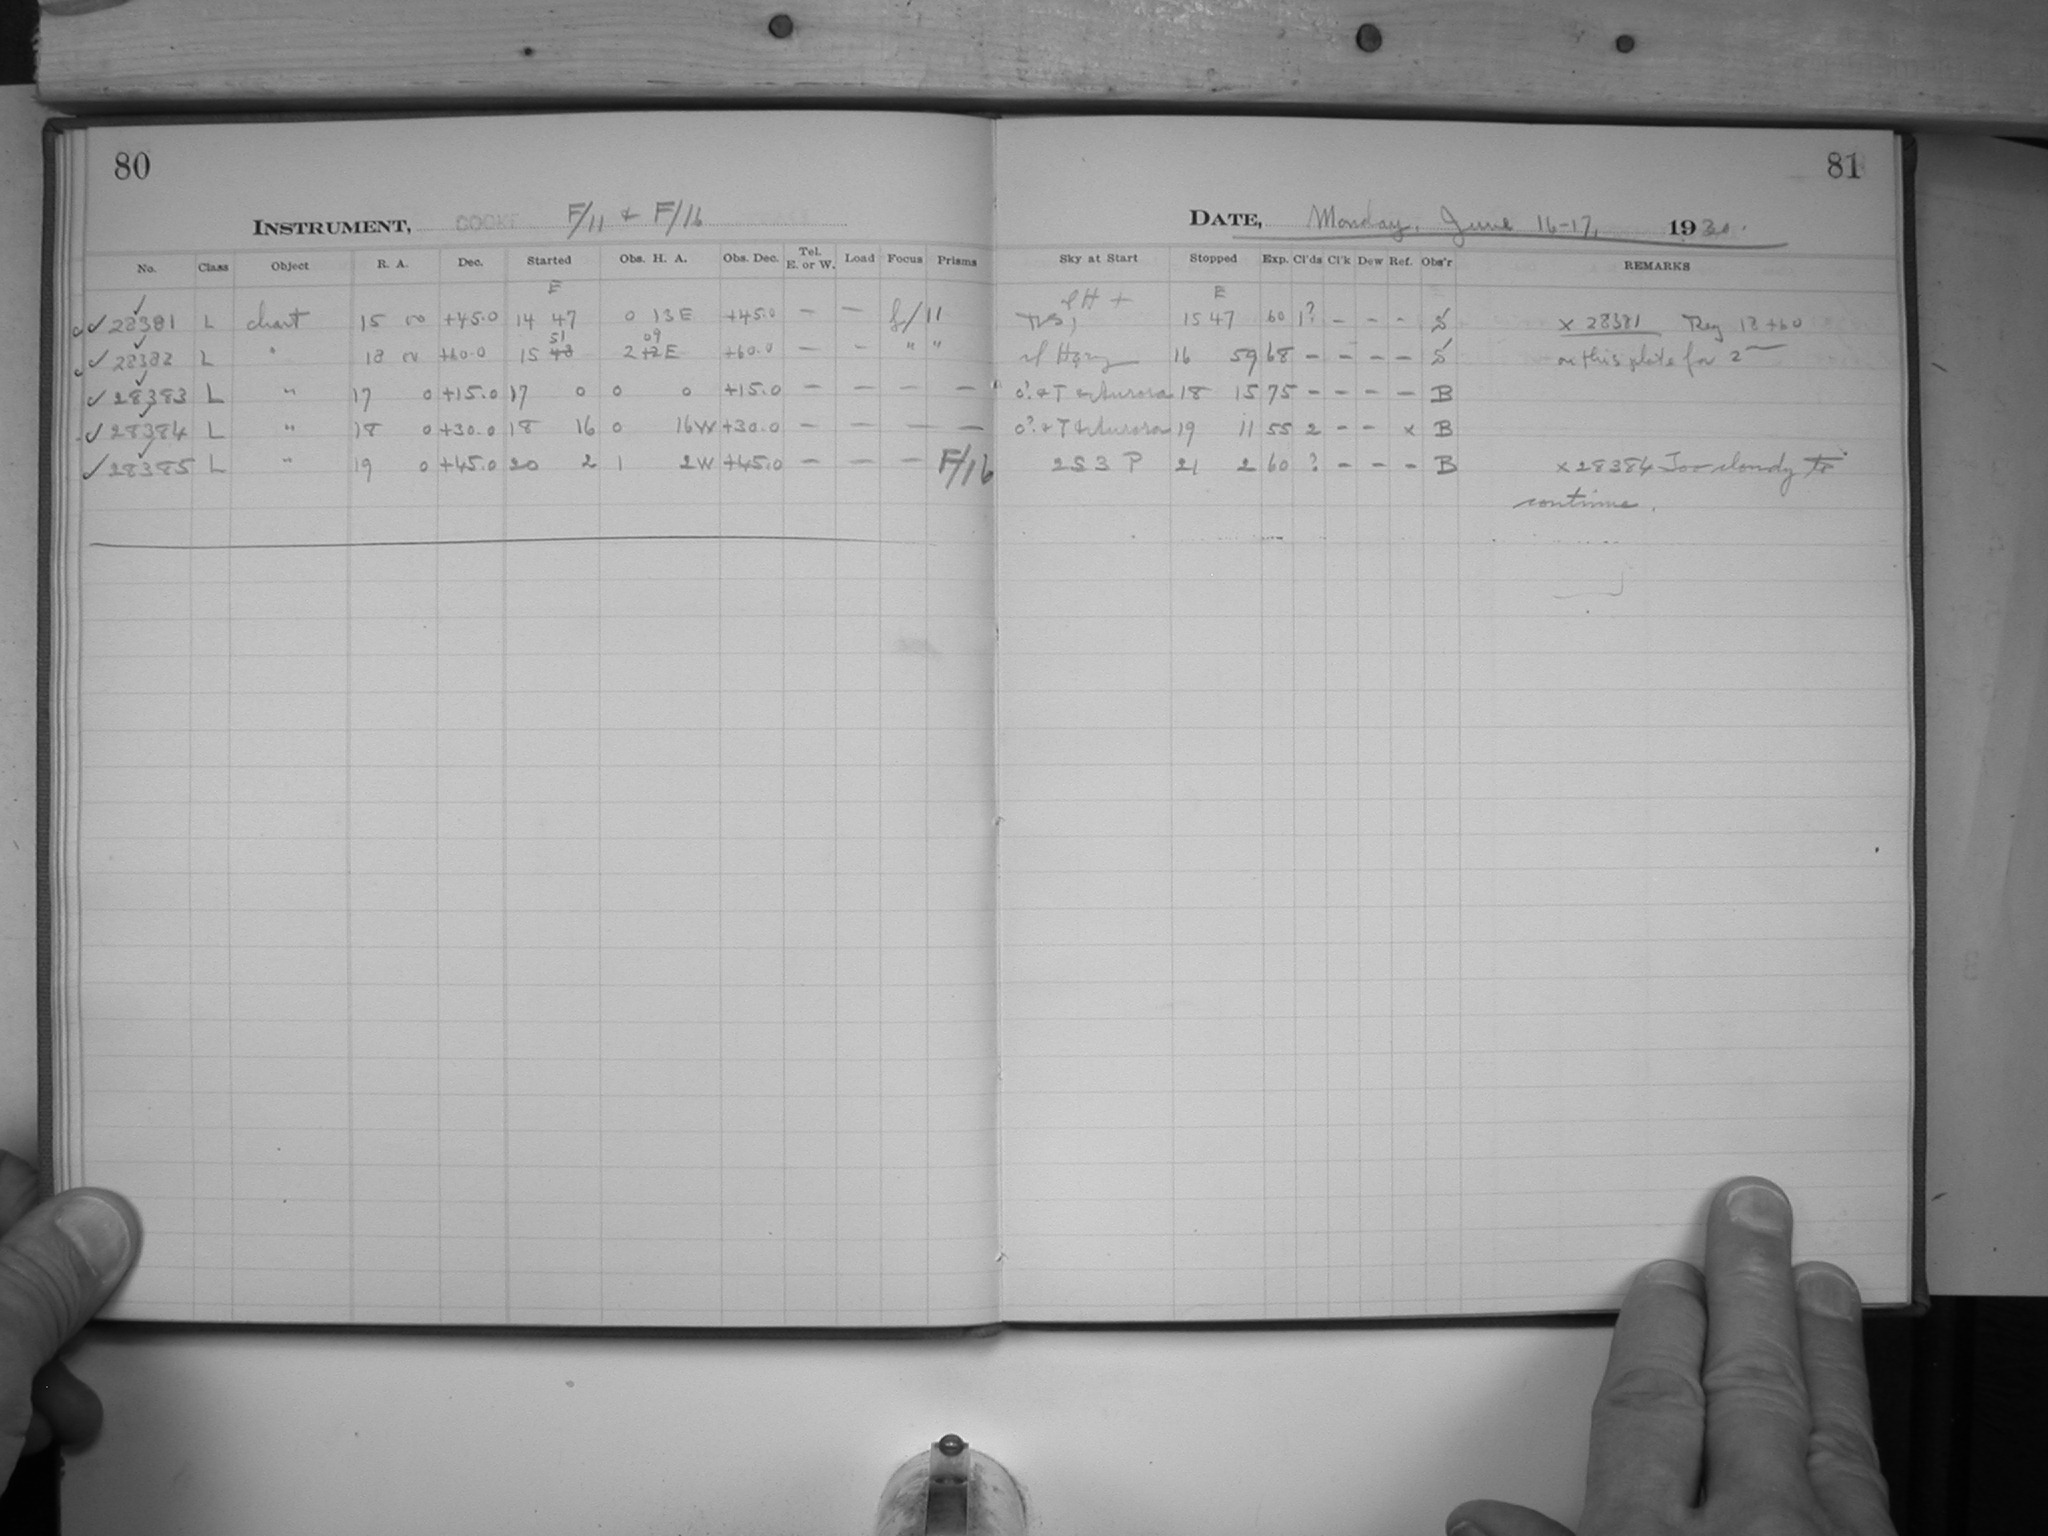 80
81
INSTRUMENT, COOKE F/11 & F/16
DATE, Monday, June 16-17, 1930.
No. Class Object R. A. Dec. Started Obs. H. A. Obs. Dec. Tel. E. or W. Load Focus Prisms Sky at Start Stopped Exp. Cl'ds Cl'k Dew Ref. Obs'r REMARKS
E E
✓ 28381 L chart 15 00 +45.0 14 47 0 13 E +45.0 — — f/11 15 47 60 1? - - - S × 28381 Reg 18 +60
51 09
✓ 28382 L " 18 00 +60.0 15 48 2 12 E +60.0 — - " " Hazy 16 59 68 - - - - S on this plate for 2
✓ 28383 L " 17 0 +15.0 17 0 0 0 +15.0 — — — — 0? & T & Aurora 18 15 75 - - - - B
✓ 28384 L " 18 0 +30.0 18 16 0 16 W +30.0 — — — — 0? & T & Aurora 19 11 55 2 - - × B
✓ 28385 L " 19 0 +45.0 20 2 1 2 W +45.0 — — — F/16 2 S 3 P 21 2 60 ? - - - B × 28384 Too cloudy to
continue.